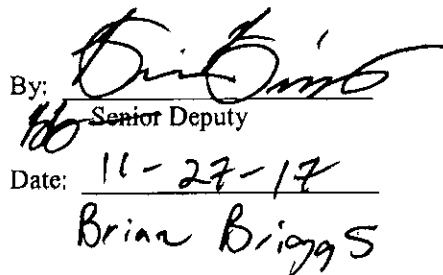 By: Brian Briggs
BB Senior Deputy
Date: 11-27-17
Brian Briggs